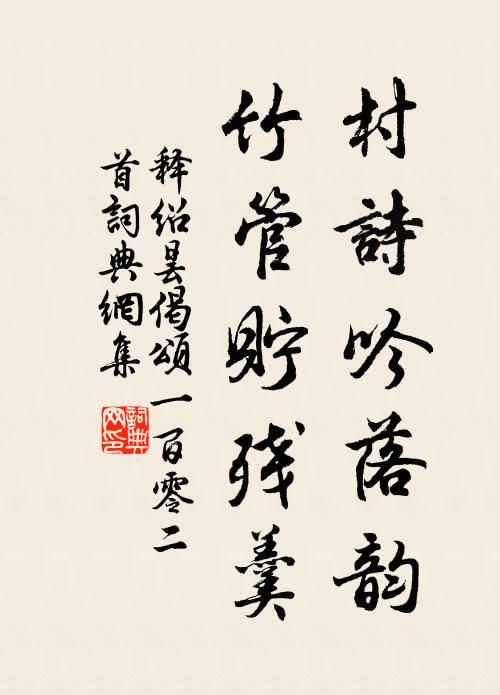 村詩吟落韵
竹管貯残羹
释绍昙偈頌一百零二
首詞典網集
詞典
网印